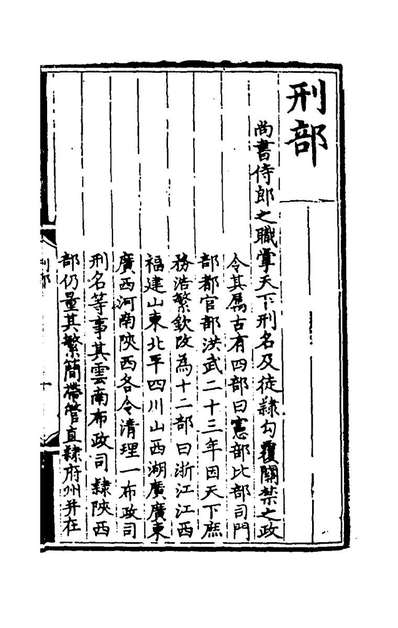 刑部
尚書侍郎之職掌天下刑名及徒隸勾覆關禁之政
令其属古有四部曰憲部比部司門
部都官部洪武二十三年因天下庶
務浩繁欽改為十二部曰浙江江西
福建山東北平四川山西湖廣廣東
廣西河南陝西各令清理一布政司
刑名等事其雲南布政司隸陝西
部仍量其繁簡帶管直隸府州并在
刑部